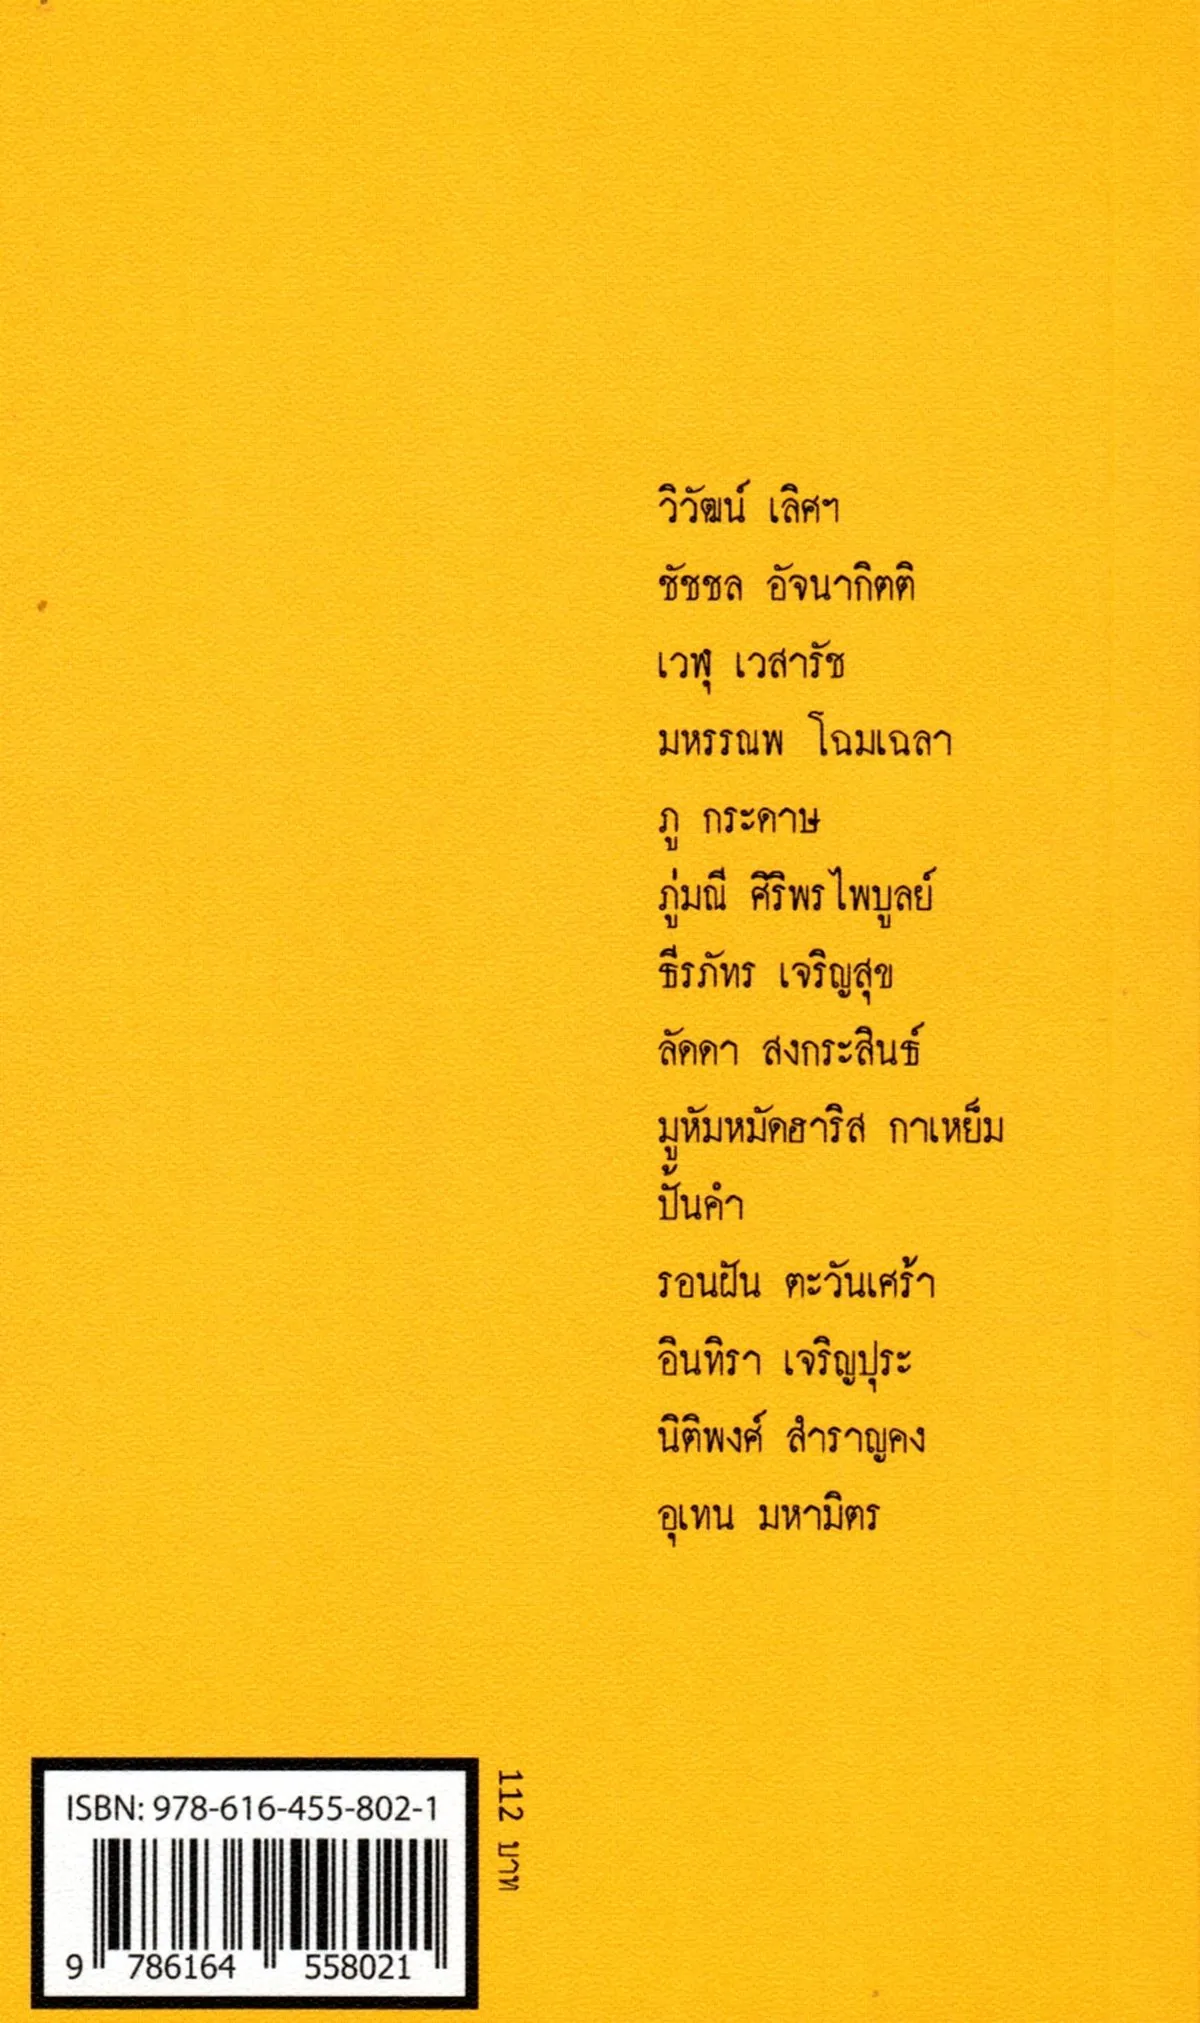 วิวัฒน์ เลิศฯ
ชัชชล อัจนากิตติ
เวฬุ เวสารัช
มหรรณพ โฉมเฉลา
ภู กระดาษ
ภู่มณี ศิริพรไพบูลย์
ธีรภัทร เจริญสุข
ลัดดา สงกระสินธ์
มูหัมหมัดฮาริส กาเหย็ม
ปั้นคำ
รอนฝัน ตะวันเศร้า
อินทิรา เจริญปุระ
นิติพงศ์ สำราญคง
อุเทน มหามิตร
ISBN: 978-616-455-802-1
9 786164 558021
112 บาท